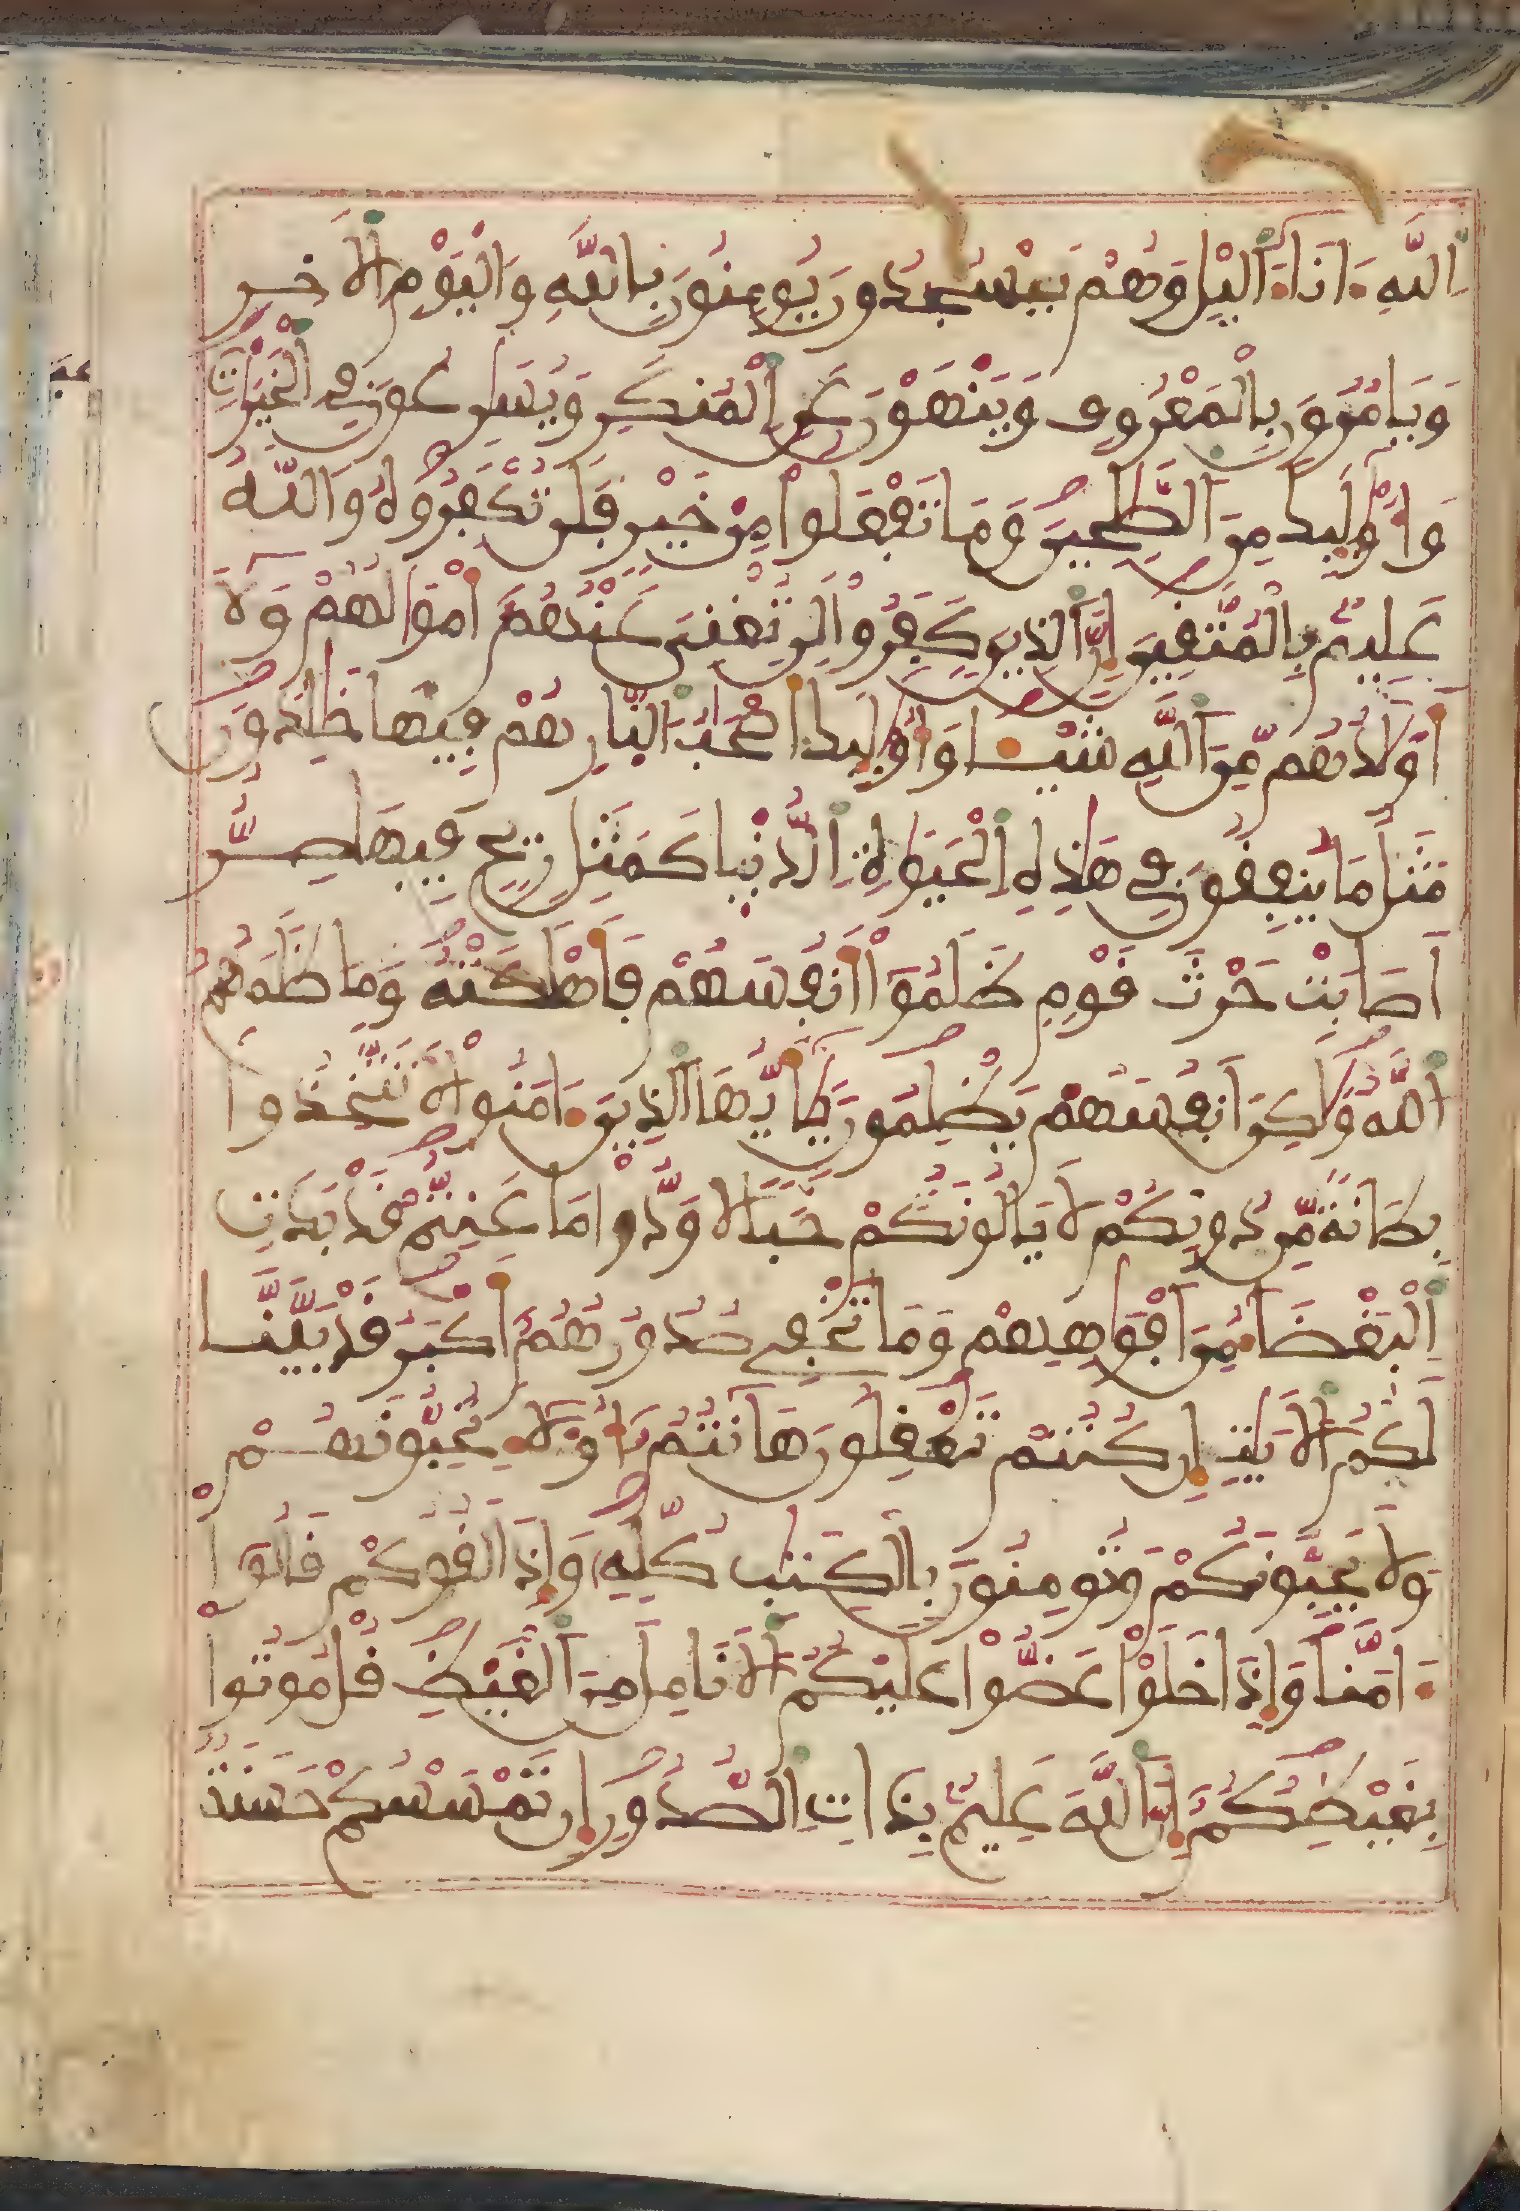 اللَّهِ ءَانَاءَ الَّيْلِ وَهُمْ يَسْجُدُونَ يُومِنُونَ بِاللَّهِ وَالْيَوْمِ الَاخِرِ
وَيَامُرُونَ بِالْمَعْرُوفِ وَيَنْهَوْنَ عَنِ الْمُنكَرِ وَيُسَٰرِعُونَ فِي الْخَيْرَٰتِ
وَأُوْلَٰئِكَ مِنَ الصَّٰلِحِينَ وَمَا تَفْعَلُواْ مِنْ خَيْرٍ فَلَن تُكْفَرُوهُ وَاللَّهُ
عَلِيمٌ بِالْمُتَّقِينَ إِنَّ الذِينَ كَفَرُواْ لَن تُغْنِيَ عَنْهُمُ أَمْوَٰلُهُمْ وَلَا
أَوْلَٰدُهُم مِّنَ اللَّهِ شَيْئا وَأُوْلَٰئِكَ أَصْحَٰبُ النَّارِ هُمْ فِيهَا خَٰلِدُونَ
مَثَلُ مَا يُنفِقُونَ فِي هَٰذِهِ الْحَيَوٰةِ الدُّنْيا كَمَثَلِ رِيحٍ فِيهَا صِرٌّ
أَصَابَتْ حَرْثَ قَوْمٍ ظَلَمُواْ أَنفُسَهُمْ فَأَهْلَكَتْهُ وَمَا ظَلَمَهُمُ
اللَّهُ وَلَٰكِنَ أَنفُسَهُمْ يَظْلِمُونَ يَٰأَيُّهَا الذِينَ ءَامَنُواْ لَا تَتَّخِذُوا
بِطَانَةً مِّن دُونِكُمْ لَا يَالُونَكُمْ خَبَالا وَدُّواْ مَا عَنِتُّمْ قَدْ بَدَتِ
الْبَغْضَاءُ مِنَ أَفْوَٰهِهِمْ وَمَا تُخْفِي صُدُورُهُمُ أَكْبَرُ قَدْ بَيَّنَّا
لَكُمُ الَايَٰتِ إِن كُنتُمْ تَعْقِلُونَ هَانتُمُ أُوْلَاءِ تُحِبُّونَهُمْ
وَلَا يُحِبُّونَكُمْ وَتُومِنُونَ بِالْكِتَٰبِ كُلِّهِ وَإِذَا لَقُوكُمْ قَالُواْ
ءَامَنَّا وَإِذَا خَلَوْاْ عَضُّواْ عَلَيْكُمُ الَانَامِلَ مِنَ الْغَيْظِ قُلْ مُوتُواْ
بِغَيْظِكُمُ إِنَّ اللَّهَ عَلِيمٌ بِذَاتِ الصُّدُورِ إِن تَمْسَسْكُمْ حَسَنَةٌ